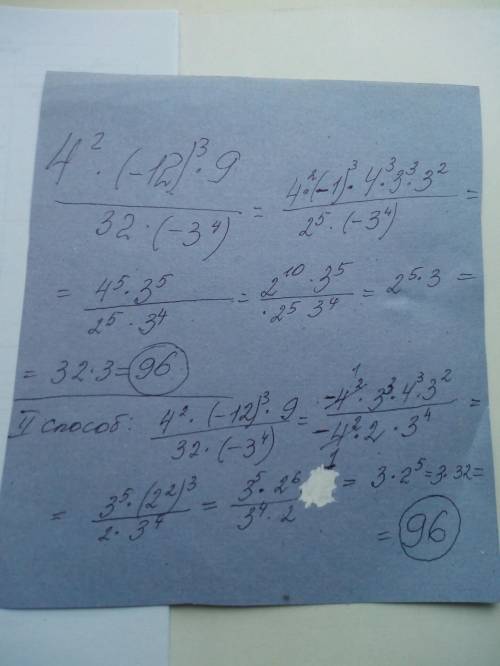 4² · (-12)³ · 9 / 32 · (-3⁴) = 4² · (-1)³ · 4³ · 3³ · 3² / 2⁵ · (-3⁴) =
= 4⁵ · 3⁵ / 2⁵ · 3⁴ = 2¹⁰ · 3⁵ / · 2⁵ 3⁴ = 2⁵ · 3 =
= 32 · 3 = 96
II способ: 4² · (-12)³ · 9 / 32 · (-3⁴) = -4² · 3³ · 4³ · 3² / -4² · 2 · 3⁴ =
1
1
= 3⁵ · (2²)³ / 2 · 3⁴ = 3⁵ · 2⁶ / 3⁴ · 2 = 3 · 2⁵ = 3 · 32 =
= 96